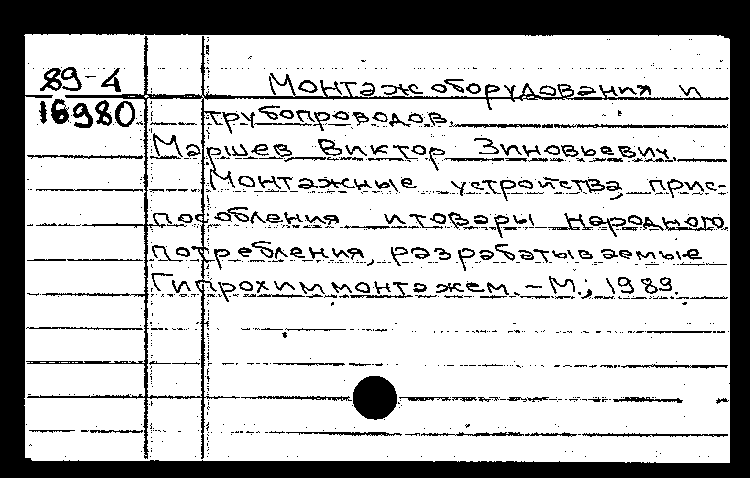 89-4
16980
Монтаж оборудования и
трубопроводов.
Маршев Виктор Зиновьевич.
Монтажные устройства, прис-
пособления и товары народного
потребления, разрабатываемые
Гипрохиммонтажем. - М.; 1989.